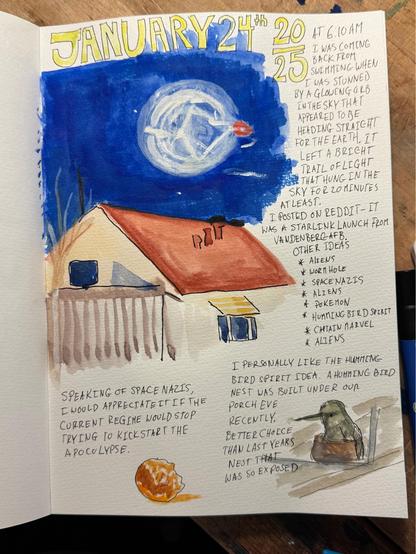 JANUARY 24th 2025
AT 6.10AM
I WAS COMING
BACK FROM
SWIMMING WHEN
I WAS STUNNED
BY A GLOWING ORB
IN THE SKY THAT
APPEARED TO BE
HEADING STRAIGHT
FOR THE EARTH, IT
LEFT A BRIGHT
TRAIL OF LIGHT
THAT HUNG IN THE
SKY FOR 20 MINUTES
AT LEAST.
I POSTED ON REDDIT - IT
WAS A STARLINK LAUNCH FROM
VANDENBERG AFB.
OTHER IDEAS
* ALIENS
* WORM HOLE
* SPACE NAZIS
* ALIENS
* POKEMON
* HUMMING BIRD SPIRIT
* CAPTAIN MARVEL
* ALIENS
I PERSONALLY LIKE THE HUMMING
BIRD SPIRIT IDEA. A HUMMING BIRD
NEST WAS BUILT UNDER OUR
PORCH EVE
RECENTLY,
BETTER CHOICE
THAN LAST YEARS
NEST THAT
WAS SO EXPOSED
SPEAKING OF SPACE NAZIS,
I WOULD APPRECIATE IT IF THE
CURRENT REGIME WOULD STOP
TRYING TO KICKSTART THE
APOCULYPSE.